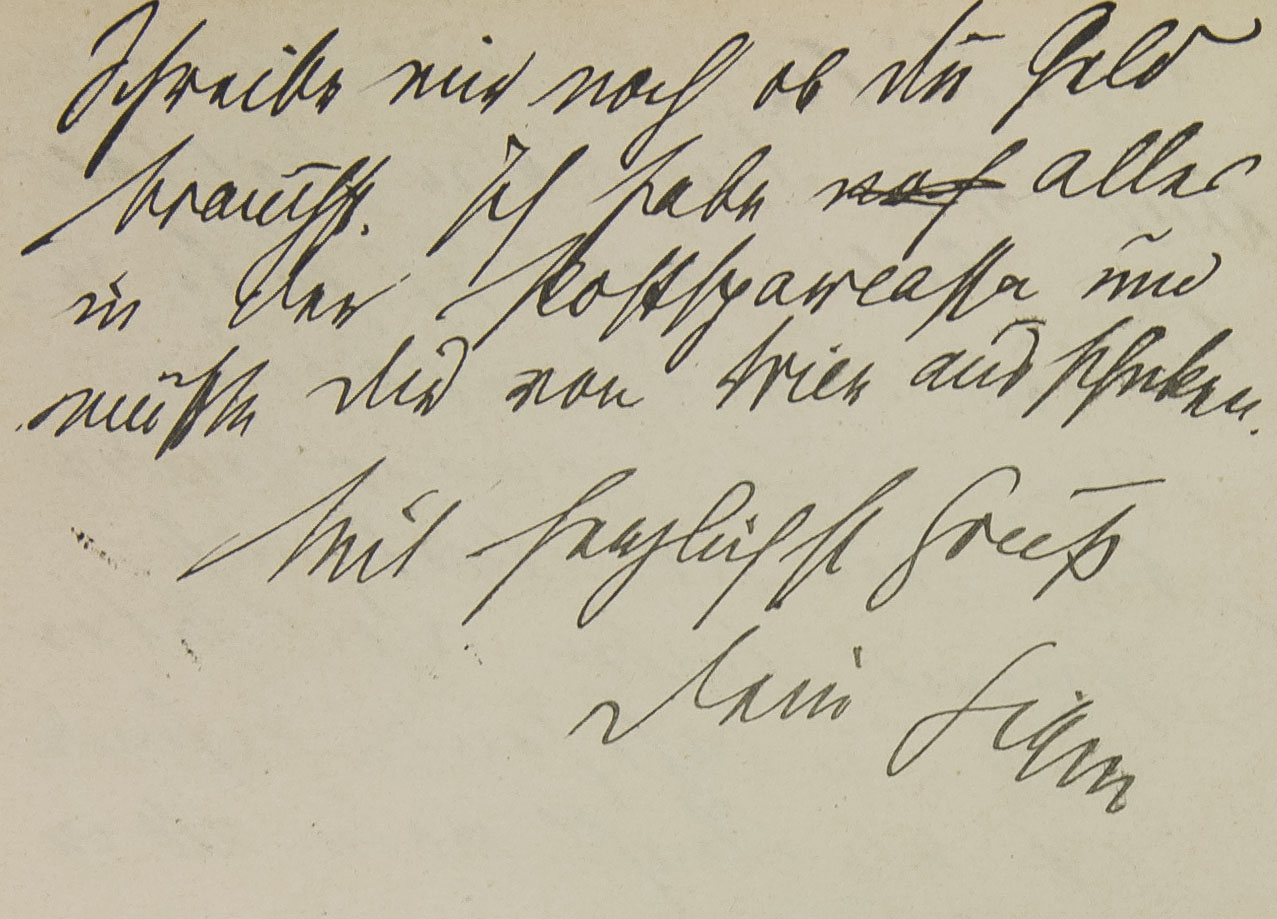 Schreibe mir noch ob du Geld
brauchst. Ich habe noch alles
in der Postsparcassa und
müßte dir von Wien aus schicken.
Mit herzlichst Gruß
Dein